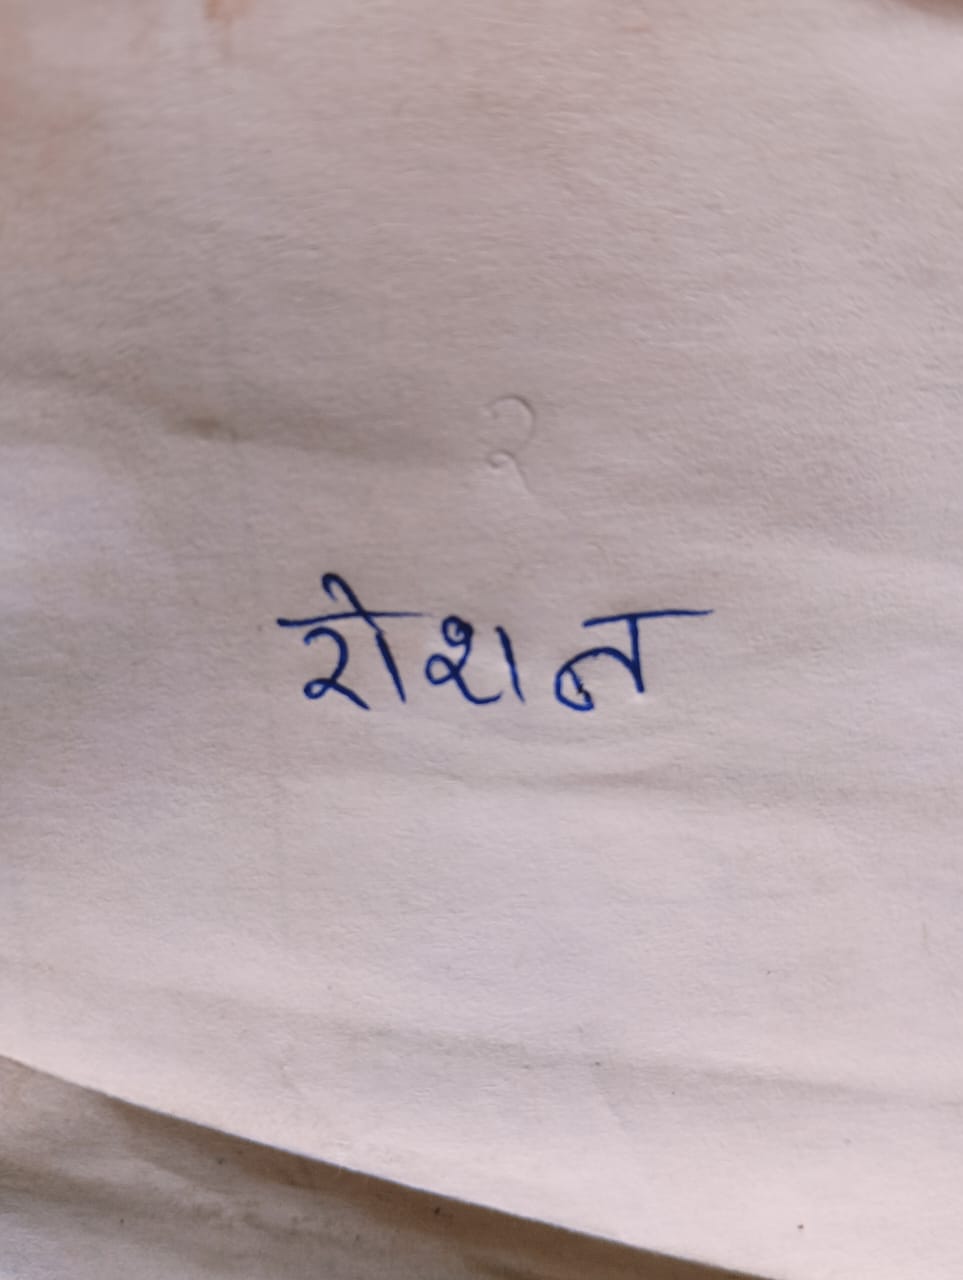 रोशन